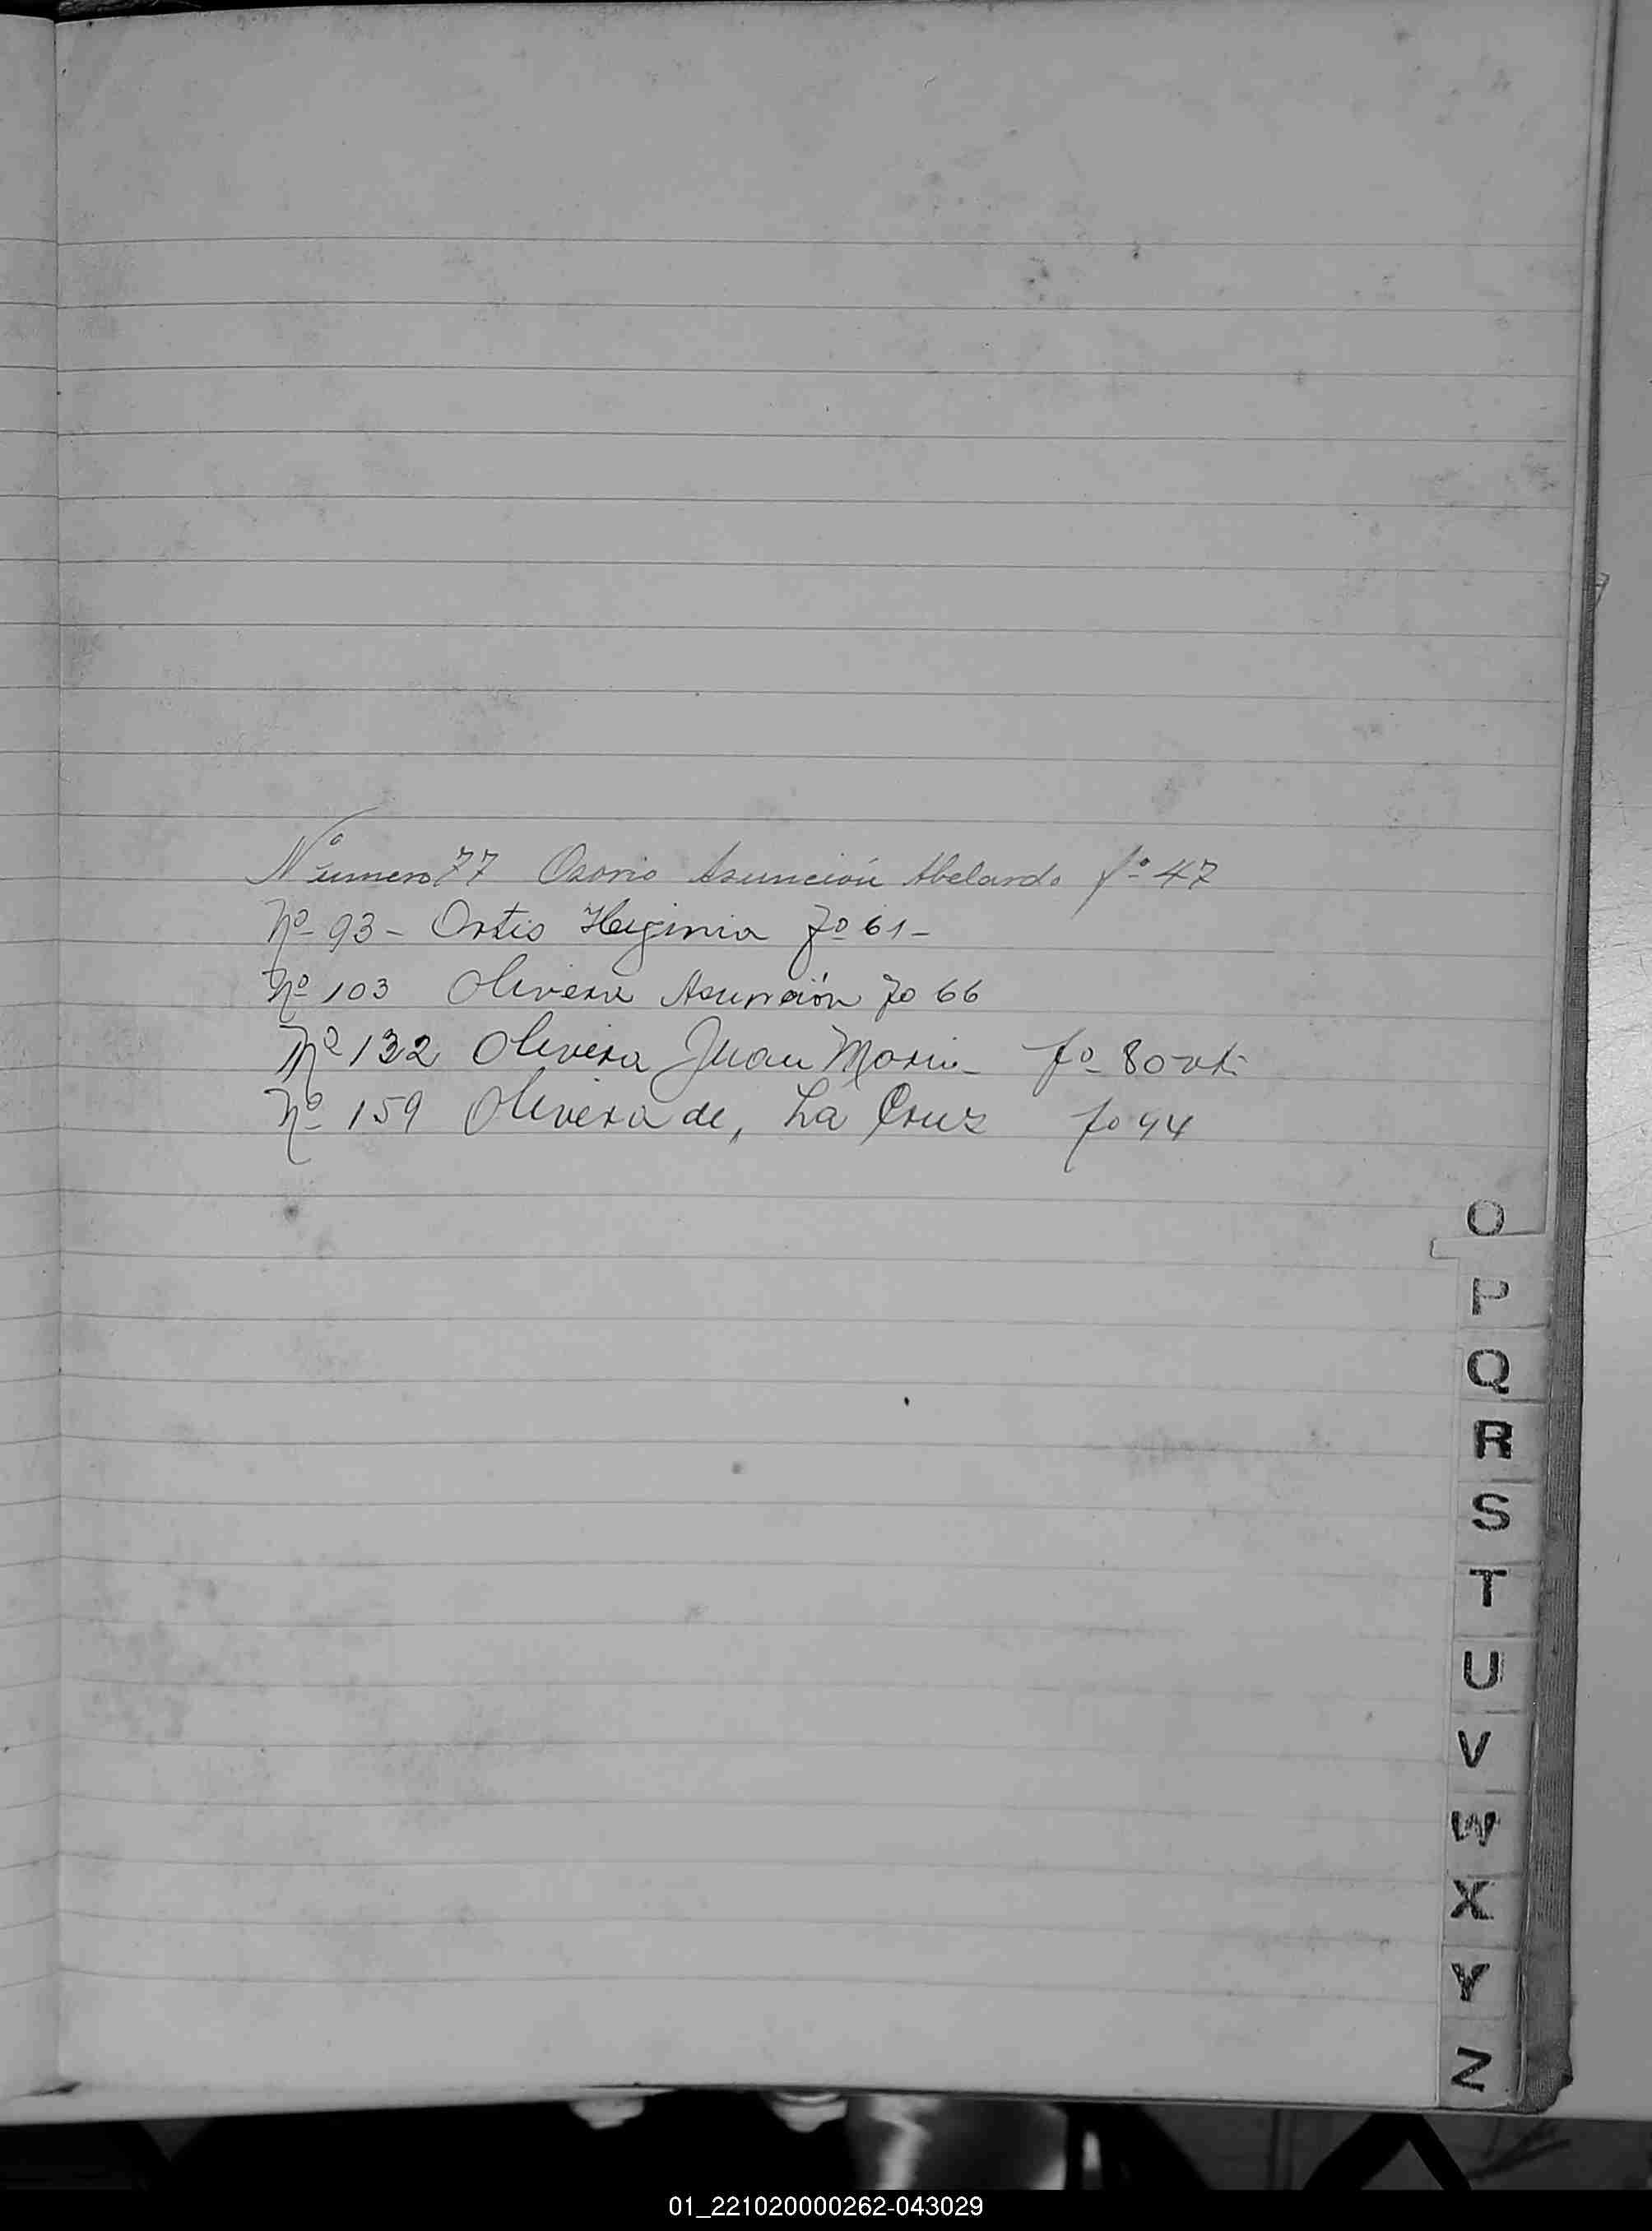 Número 77 Osorio Asunción Abelardo fº 47
Nº 93 - Ortis Higinia fº 61 -
Nº 103 Olivera Asunción fº 66
Nº 132 Olivera Juan Marin - fº 80 vt
Nº 159 Olivera de, La Cruz fº 94
O
P
Q
R
S
T
U
V
W
X
Y
Z
01_221020000262-043029